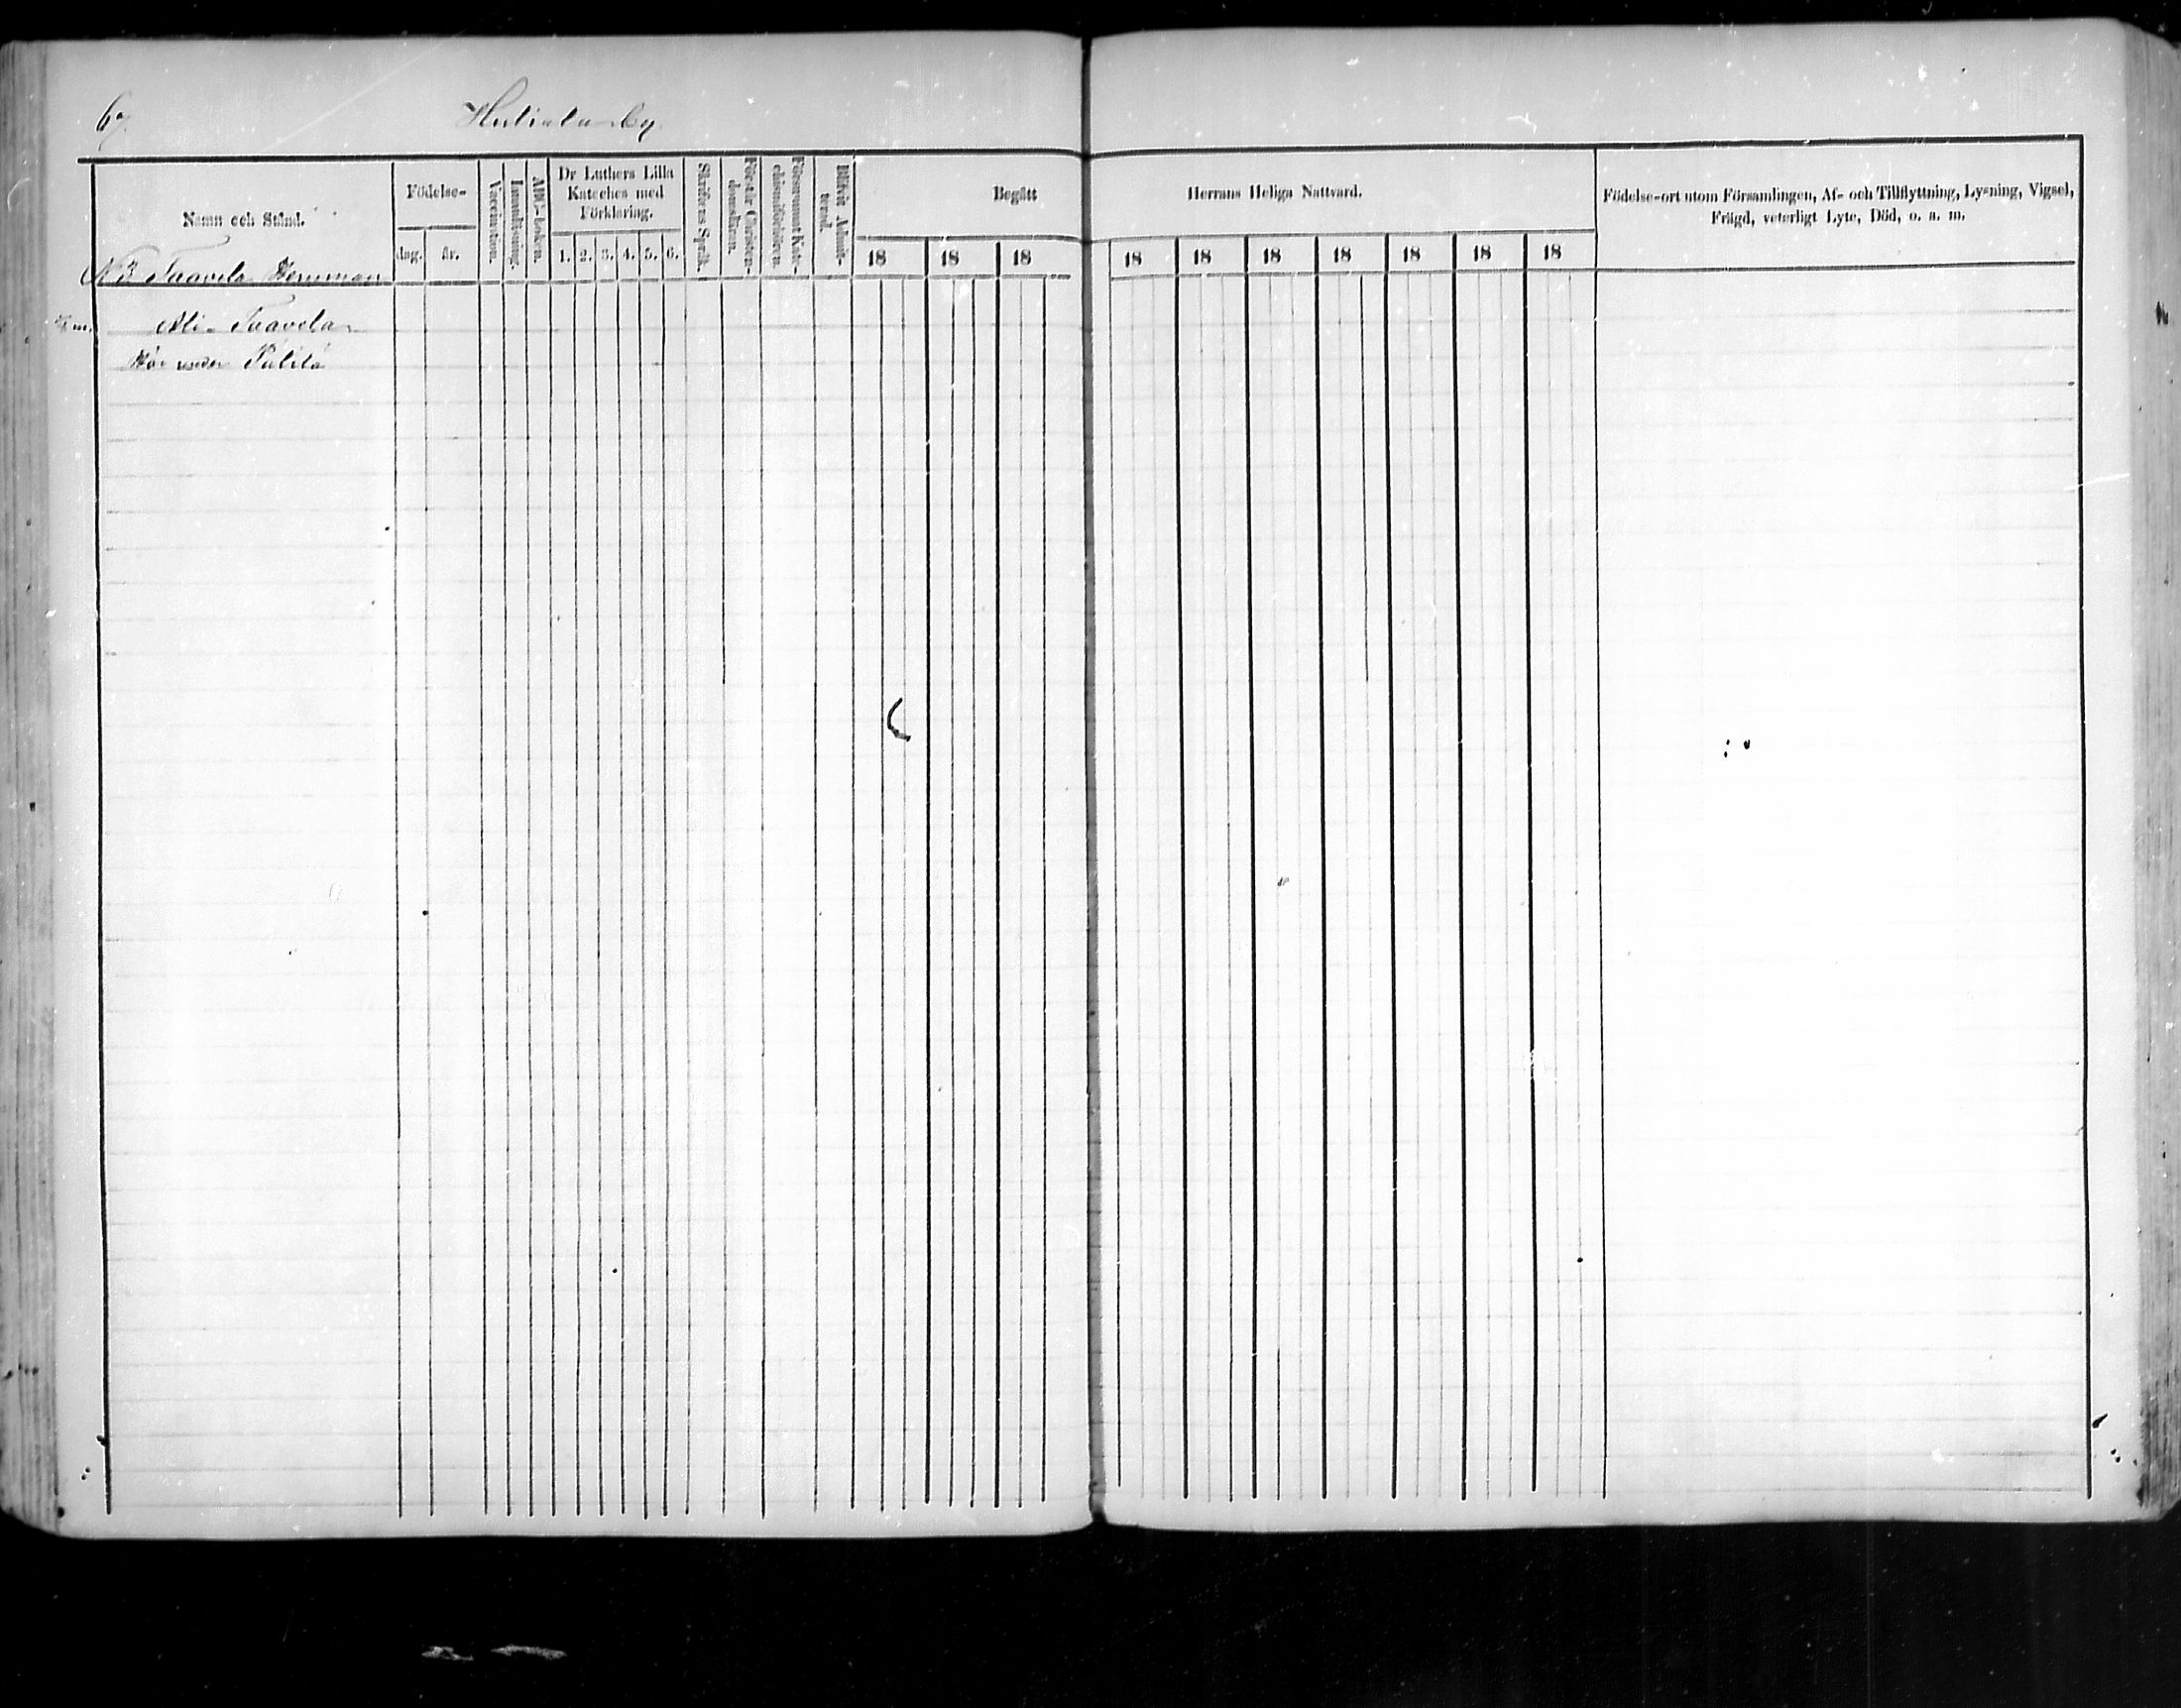 67.
Hulialu by.
Namn och Stånd.
Födelse-
dag. år.
Vaccination.
Innanläsning.
ABC-boken.
Dr Luthers Lilla
Kateches med
Förklaring.
1. 2. 3. 4. 5. 6.
Skriftens Språk.
Förstår Christen-
domsläran.
Försummat Kate-
chismiförhören.
Blifvit Admit-
terad.
Begått Herrans Heliga Nattvard.
18 18 18 18 18 18 18 18 18 18
Födelse-ort utom Församlingen, Af- och Tillflyttning, Lysning, Vigsel,
Frägd, veterligt Lyte, Död, o. s. m.
N 3 Taavela Hemman
m. Ali Taavela
Hör under